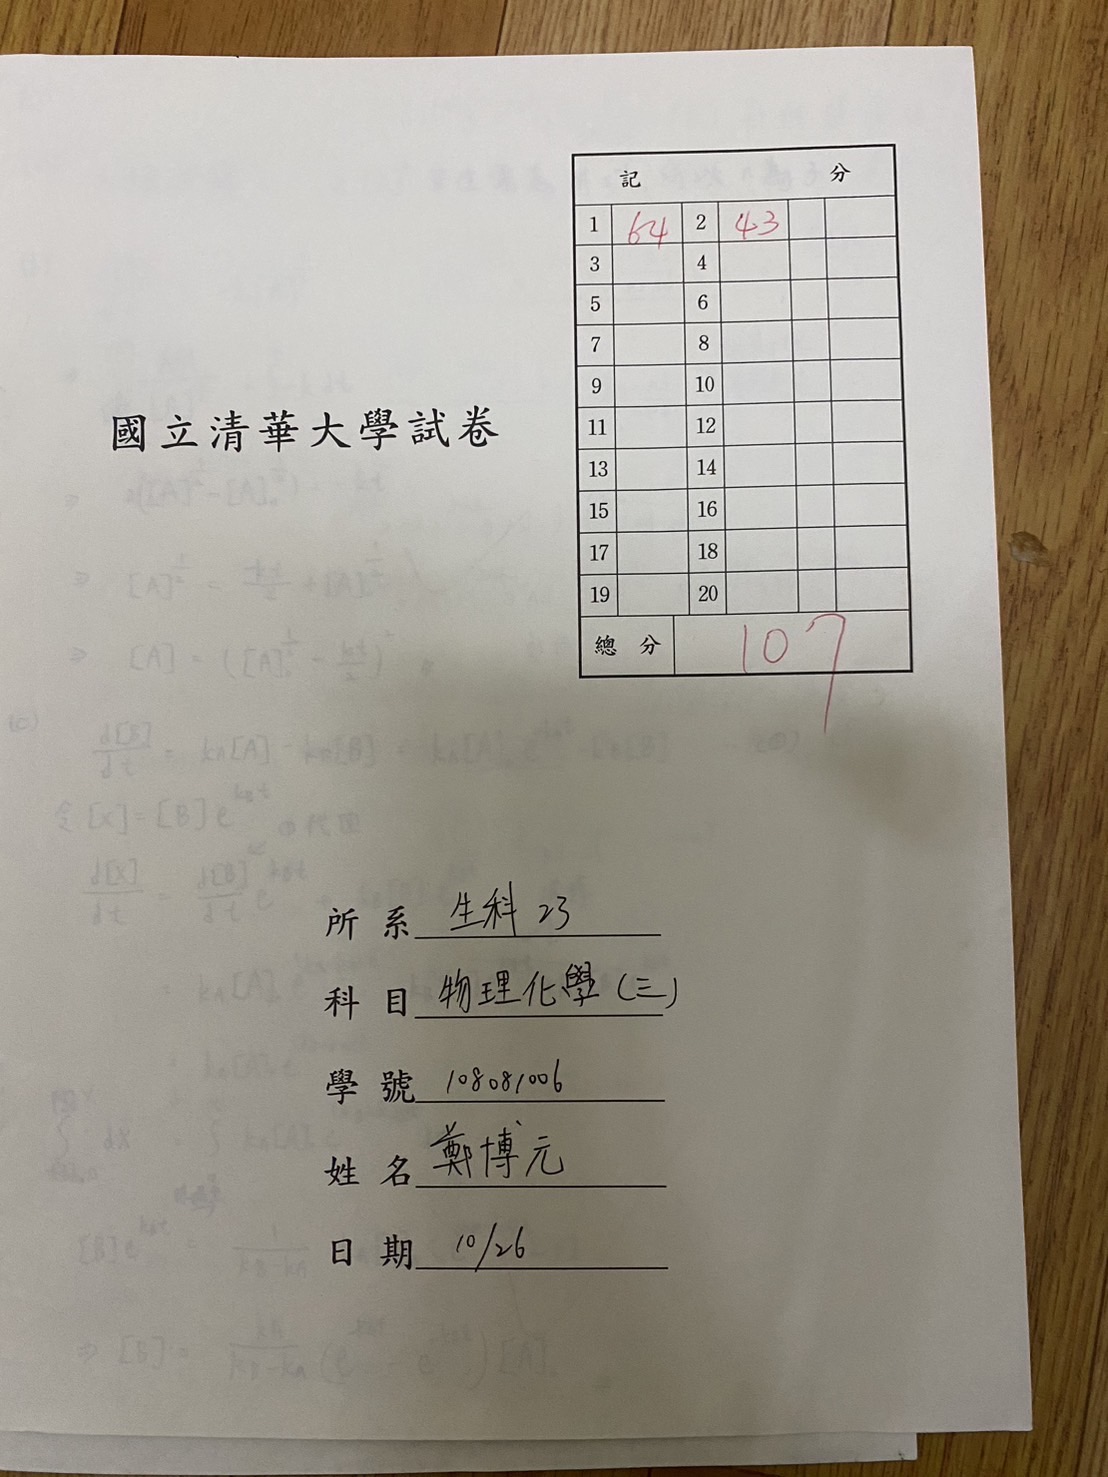 記 分
1 64 2 43
3 4
5 6
7 8
9 10
11 12
13 14
15 16
17 18
19 20
總 分 107
國立清華大學試卷
所 系 生科 23
科 目 物理化學(三)
學 號 108081006
姓 名 鄭博元
日 期 10/26